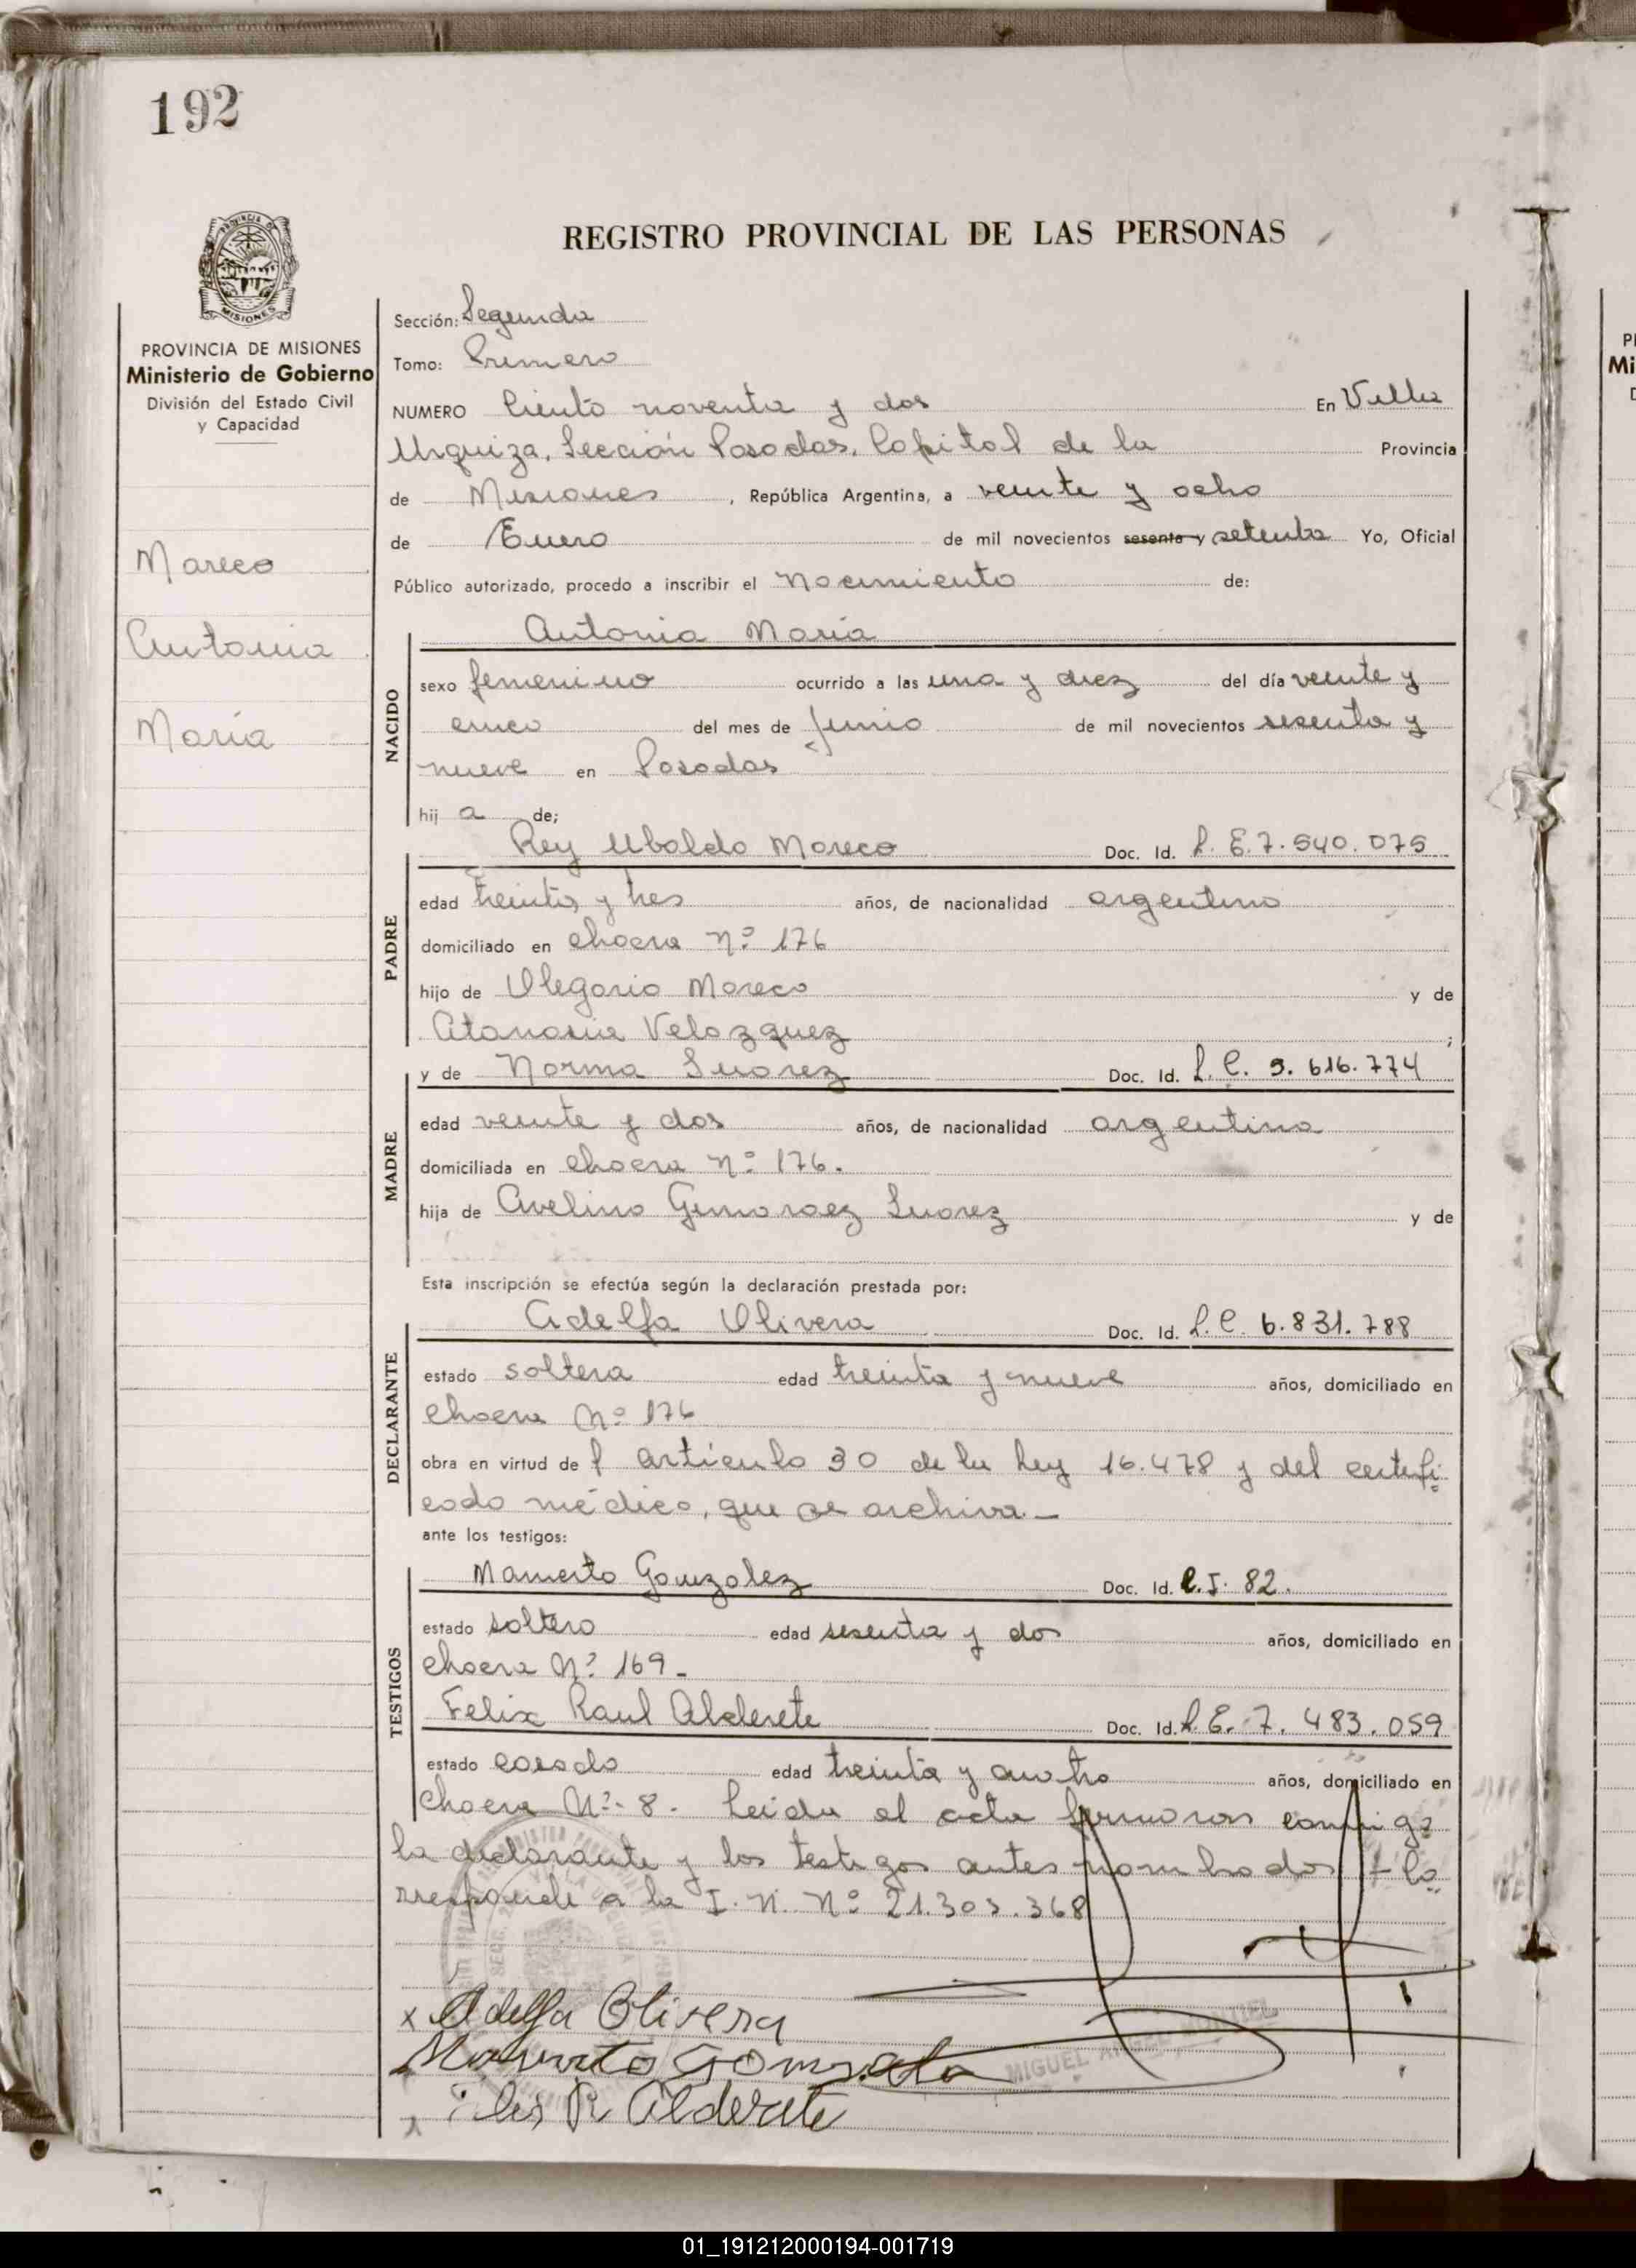 192
REGISTRO PROVINCIAL DE LAS PERSONAS
MISIONES
PROVINCIA DE MISIONES
Ministerio de Gobierno
División del Estado Civil
y Capacidad
Mareco
Antonia
María
Sección: Segunda
Tomo: Primero
NUMERO Ciento noventa y dos En Villa
Urquiza, Sección Posadas, Capital de la Provincia
de Misiones, República Argentina, a veinte y ocho
de Enero de mil novecientos sesenta y setenta Yo, Oficial
Público autorizado, procedo a inscribir el Nacimiento de:
NACIDO
Antonia María
sexo femenino ocurrido a las una y diez del día veinte y
cinco del mes de Junio de mil novecientos sesenta y
nueve en Posadas
hij a de;
PADRE
Rey Ubaldo Mareco Doc. Id. L. E. 7.540.075
edad treinta y tres años, de nacionalidad argentino
domiciliado en chacra Nº 176
hijo de Olegario Mareco y de
Atanasia Velazquez;
MADRE
y de Norma Suarez Doc. Id. L. C. 9.616.774
edad veinte y dos años, de nacionalidad argentina
domiciliada en chacra Nº 176.
hija de Avelino Gimaraez Suarez y de
Esta inscripción se efectúa según la declaración prestada por:
DECLARANTE
Adelfa Olivera Doc. Id. L. C. 6.831.788
estado soltera edad treinta y nueve años, domiciliado en
chacra Nº 176
obra en virtud de l artículo 30 de la Ley 16.478 y del certifi
cado médico, que se archiva.-
ante los testigos:
TESTIGOS
Mamerto Gonzalez Doc. Id. C. I. 82.
estado soltero edad sesenta y dos años, domiciliado en
chacra Nº 169-
Felix Raul Alderete Doc. Id. L. E. 7.483.059
estado casado edad treinta y cuatro años, domiciliado en
chacra Nº 8. Leída el acta firmaron conmigo
la declarante y los testigos antes nombrados + Co
rresponde a la I. N. Nº 21.303.368
x Adelfa Olivera
Mamerto Gonzalez
x Felix R Alderete
MIGUEL
01_191212000194-001719